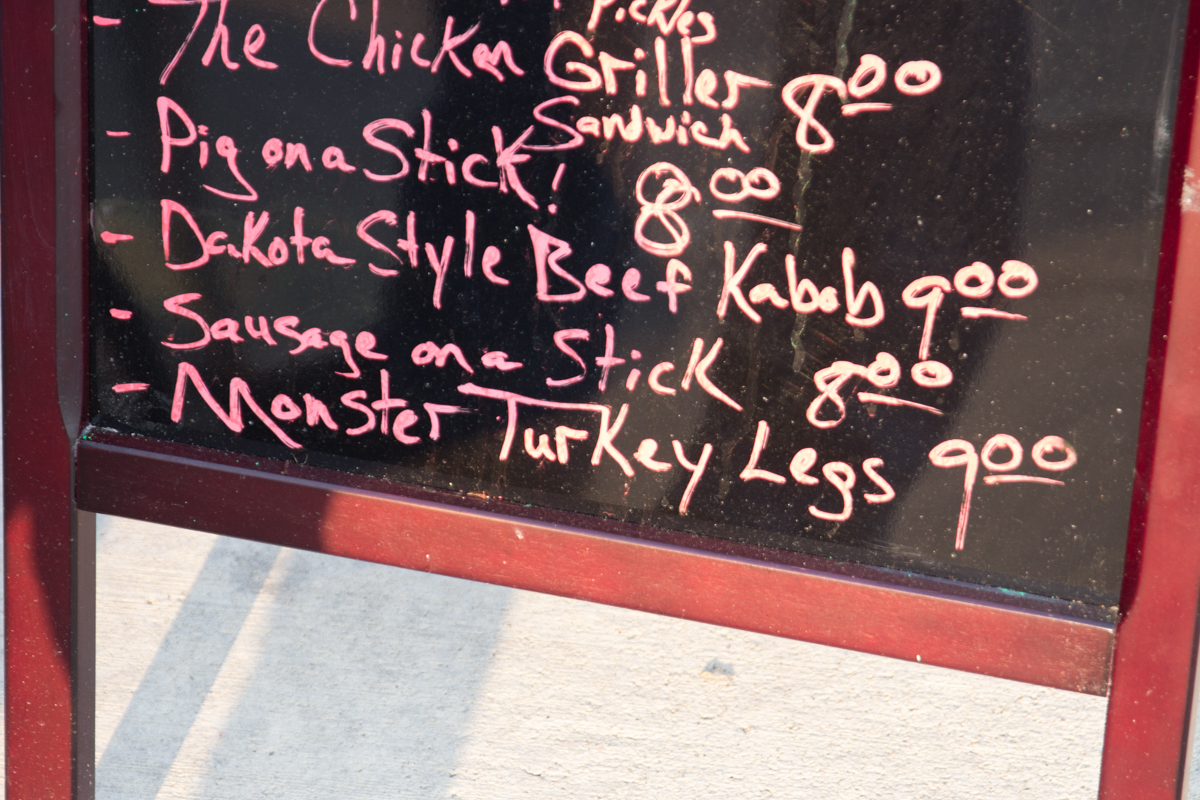 Pickles
- The Chicken Griller 8.00
Sandwich
- Pig on a Stick! 8.00
- Dakota Style Beef Kabob 9.00
- Sausage on a Stick 8.00
- Monster Turkey Legs 9.00